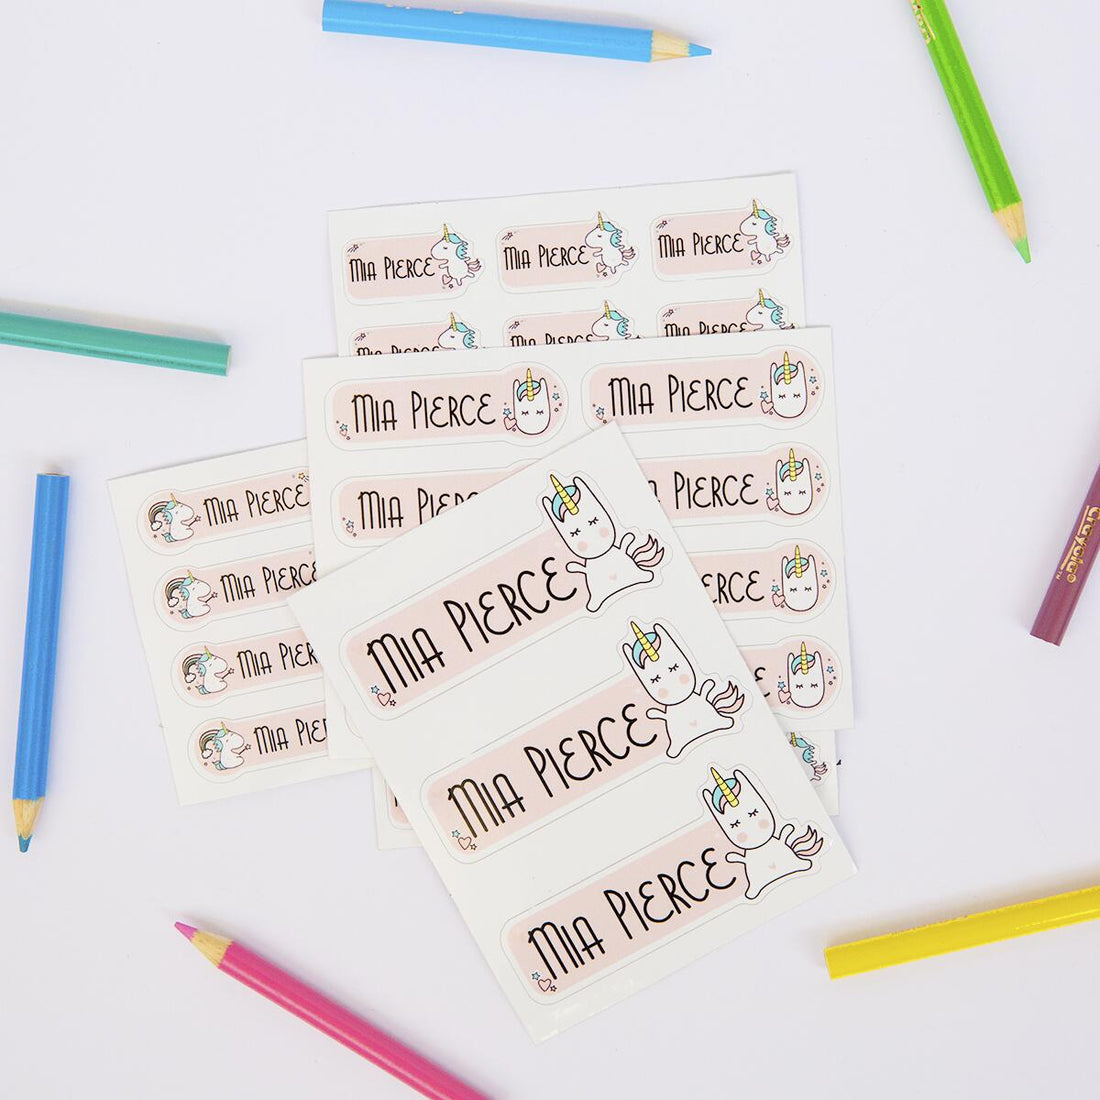 Mia Pierce
Mia Pierce
Mia Pierce
Mia Pierce
Mia Pierce
Mia Pierce
Mia Pierce
Mia Pierce
Mia P
Pierce
Mia Pierce
Mia Pierce
Mia Pier
Mia Pie
Mia Pierce
Mia Pierce
Mia Pierce
Crayola